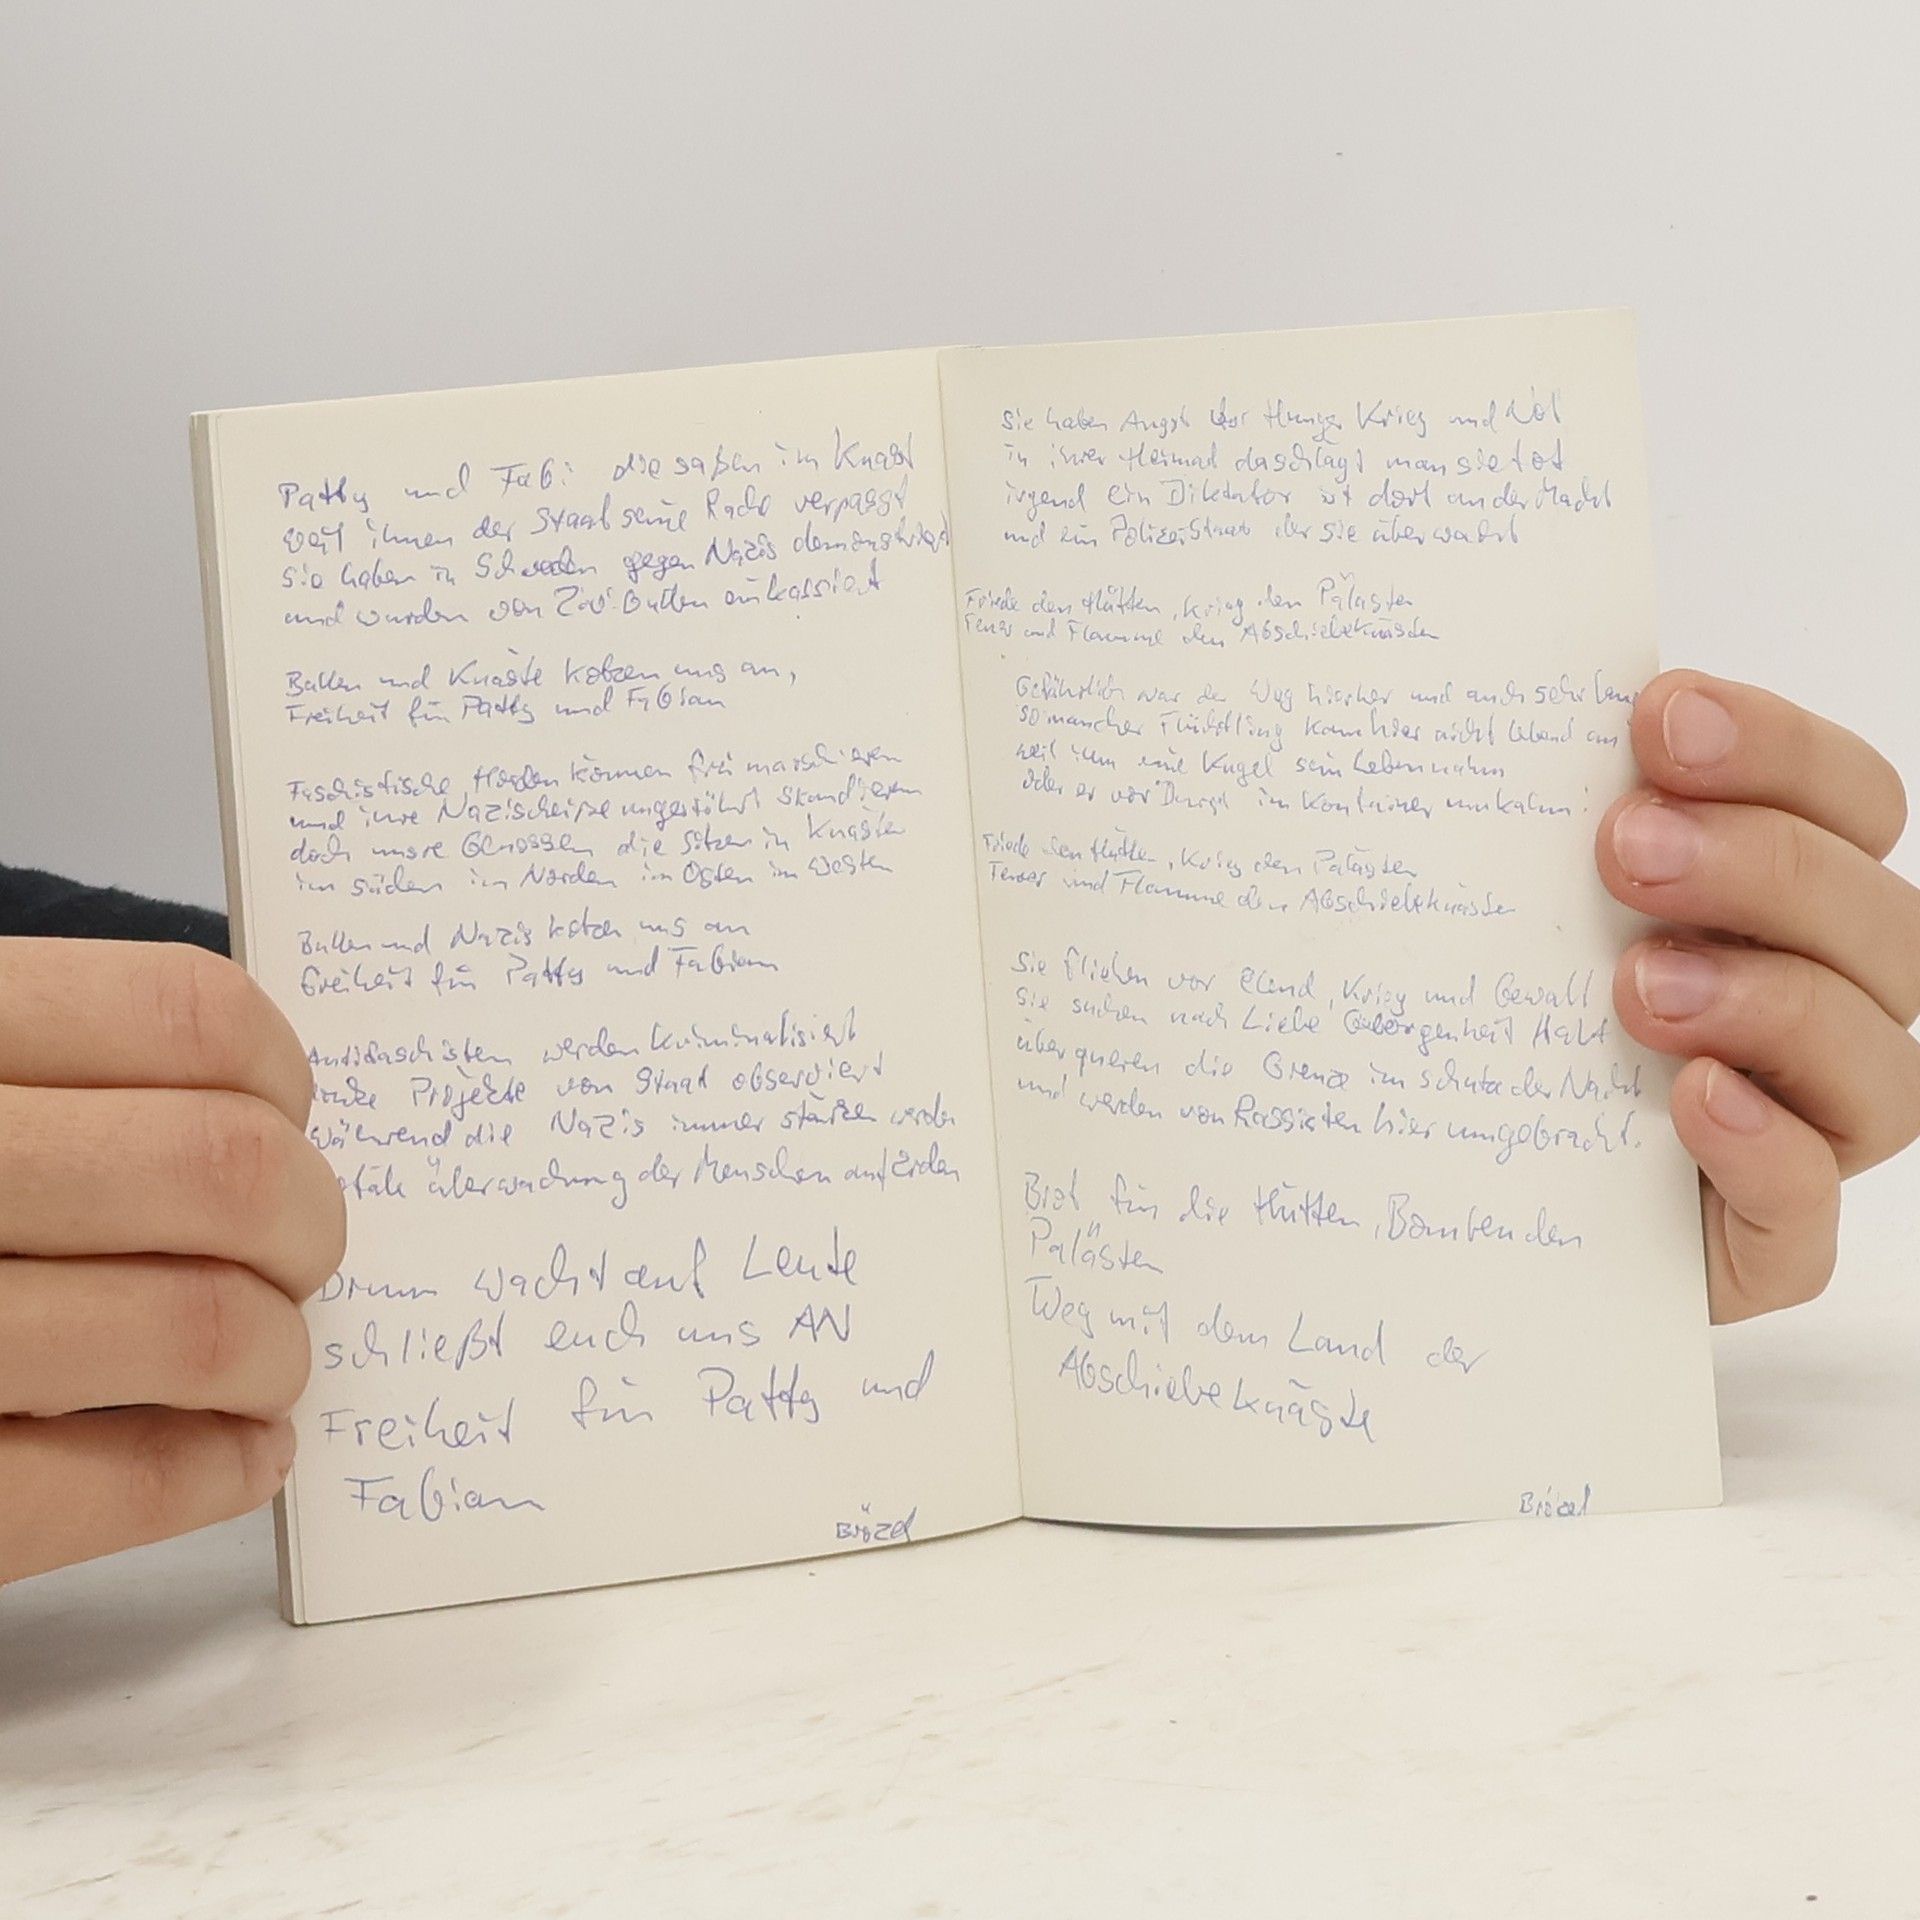 Patty und Fabi die saßen im Knast
weil ihnen der Staat seine Rache verpasst
Sie haben in gegen Nazis demonstriert
und wurden von Zivi-Bullen einkassiert
Bullen und Knäste kotzen uns an,
Freiheit für Patty und Fabian
Faschistische Horden können frei marschieren
und ihre Nazischeiße ungestört skandieren
doch unsre Genossen die sitzen in Knäste
im süden im Norden im Osten im Westen
Bullen und Nazis kotzen uns an
Freiheit für Patty und Fabian
Antifaschisten werden kriminalisiert
linke Projekte von Staat observiert
während die Nazis immer stärker werden
überwachung der Menschen auf Erden
Drum wacht auf Leute
schließt euch uns AN
Freiheit für Patty und
Fabian
Brözel
Sie haben Angst vor Hunger Krieg und Not
in ihrer Heimat da schlägt man sie tot
irgend ein Diktator ist dort an der Macht
und ein Polizeistaat der sie überwacht
Friede den Hütten, Krieg den Palästen
Feuer und Flamme den Abschiebeknästen
Gefährlich war der Weg hierher und auch sehr lang
so mancher Flüchtling kam hier nicht lebend an
weil ihm eine Kugel sein Leben nahm
oder er vor Durst im Kontainer umkahm!
Friede den Hütten, Krieg den Palästen
Feuer und Flamme den Abschiebeknästen
Sie fliehen vor Elend, Krieg und Gewalt
Sie suchen nach Liebe Geborgenheit Halt
überqueren die Grenze im schutz der Nacht
und werden von Rassisten hier umgebracht.
Brot für die Hütten, Bomben den
Palästen
Weg mit dem Land der
Abschiebeknäste
Brözel